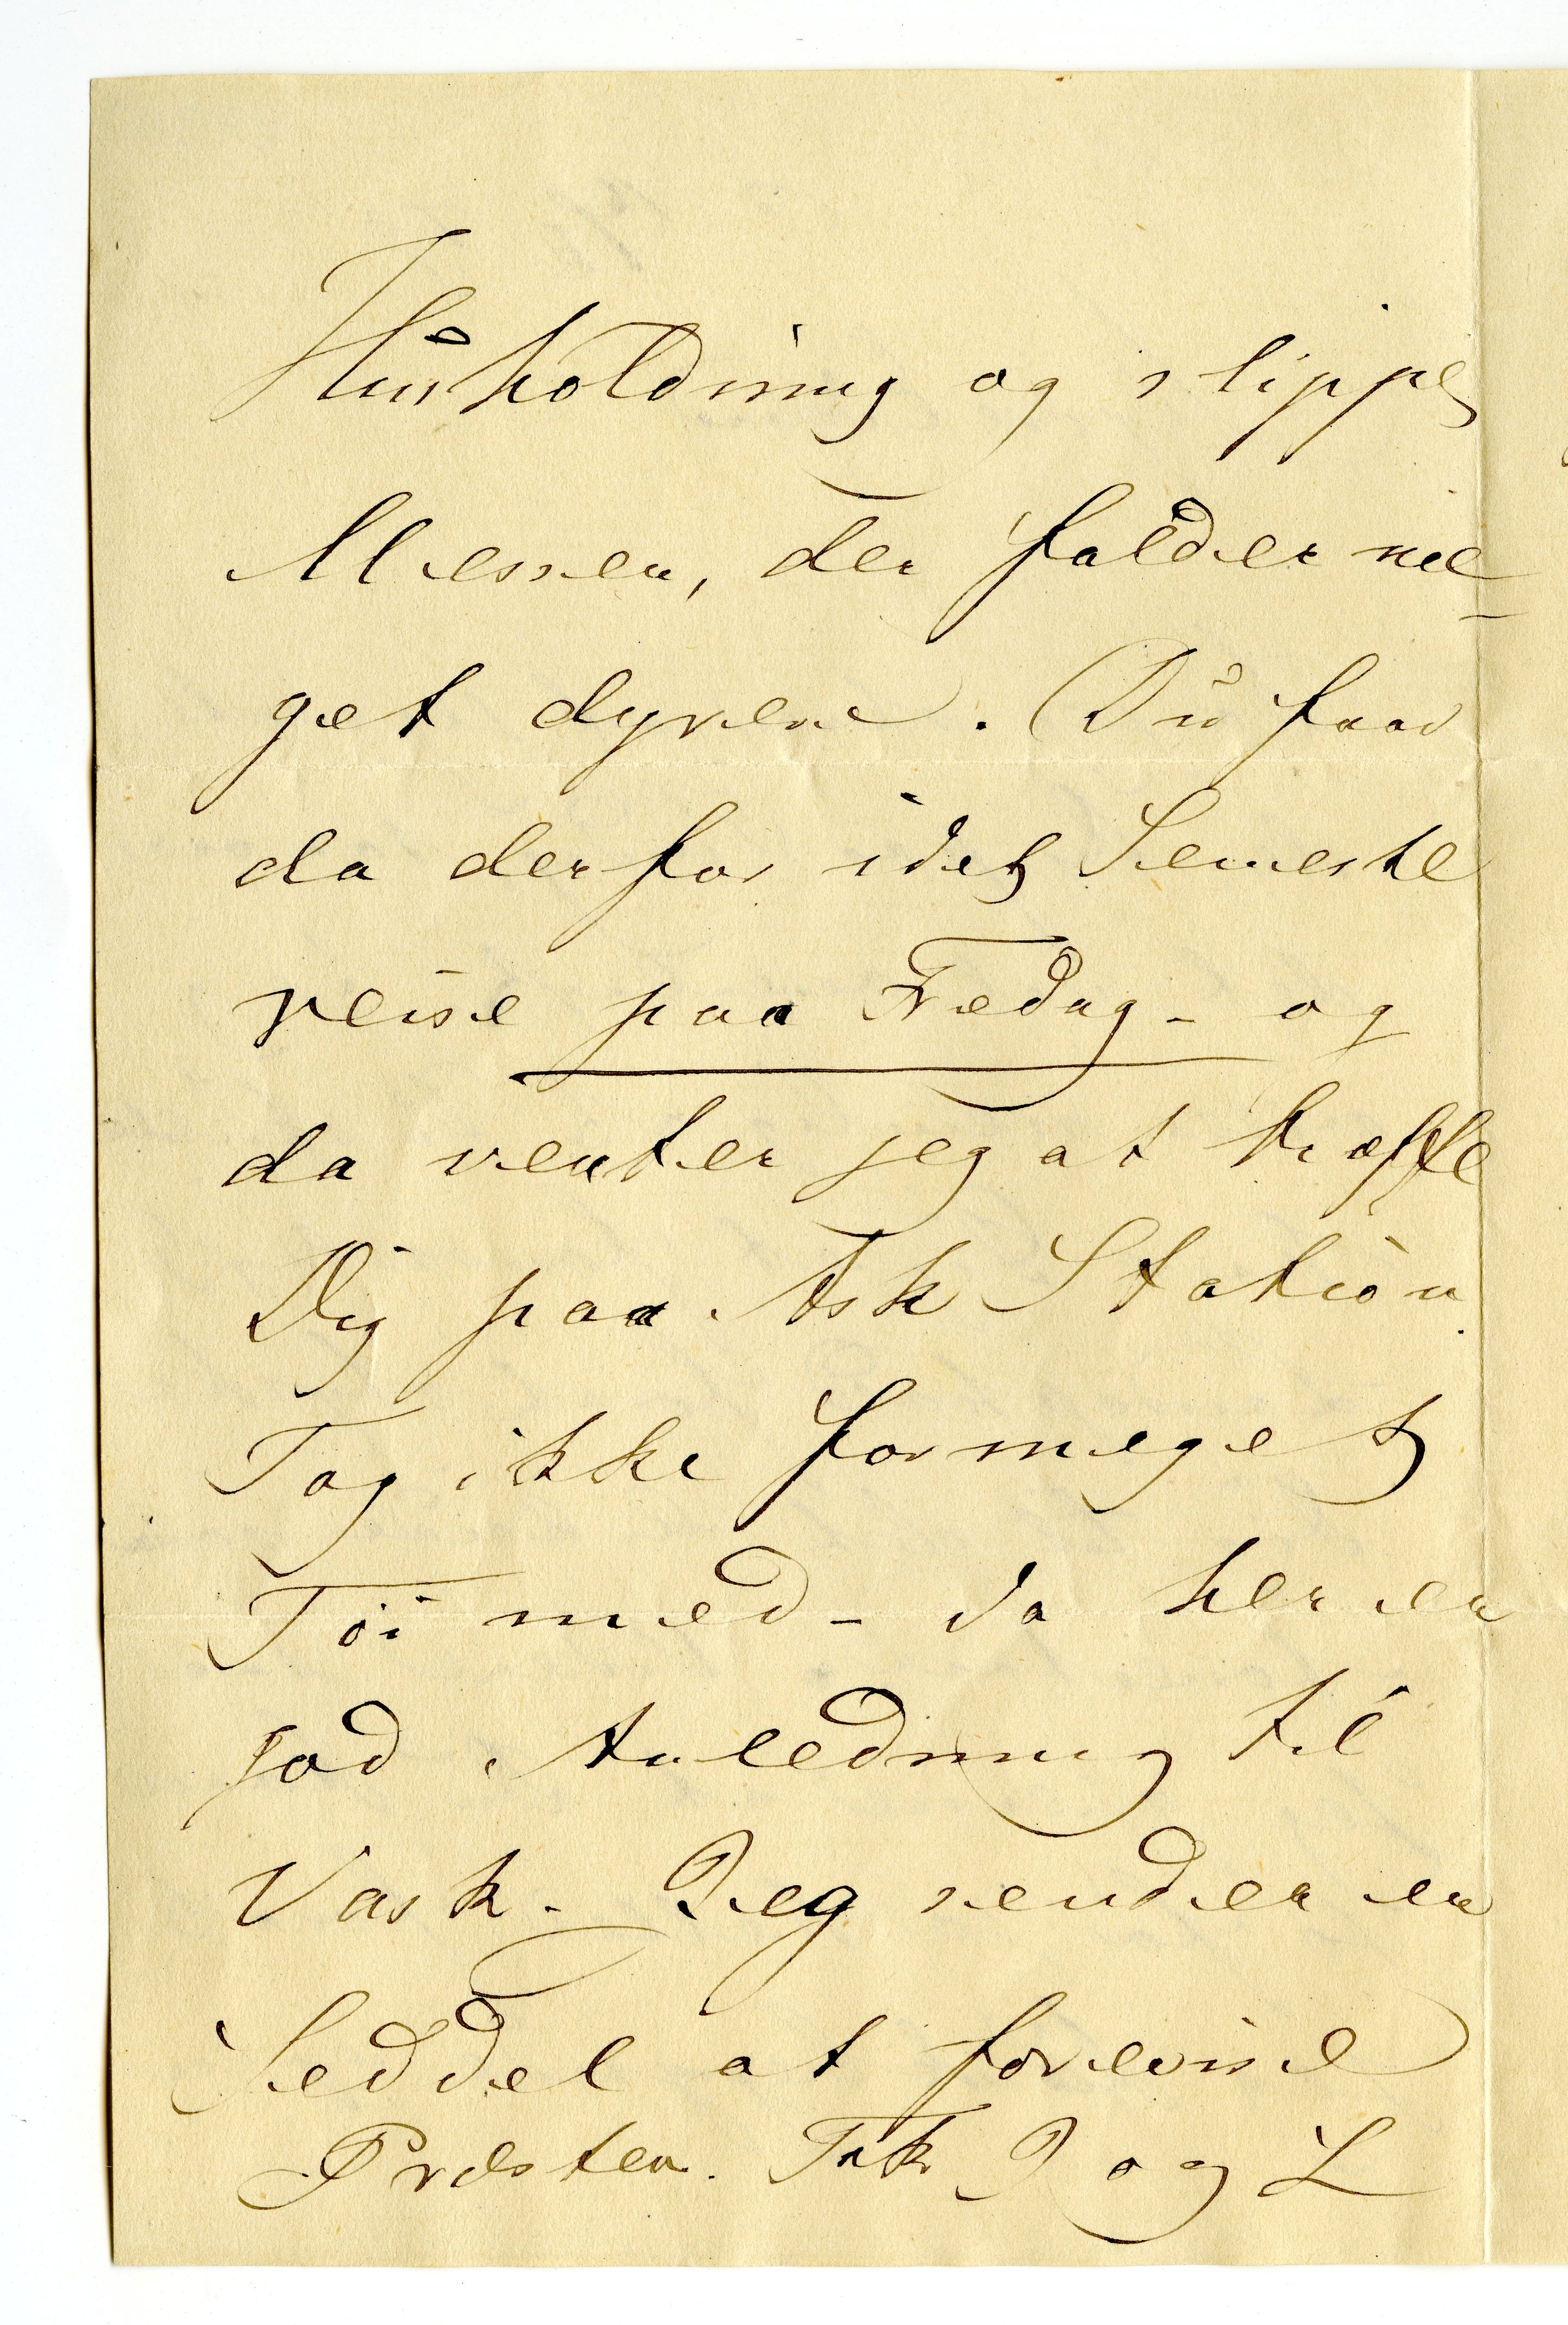 Husholdning og slippe
Messen, der falder me-
get dyrere. Du faar
da derfor i det Semeste
reise paa Fredag - og
da venter jeg at træffe
Dig paa Ask Station.
Tag ikke formeget
Töi med - da her er
god Anledning til
Vask. Jeg sender en
Seddel at forevise
Præsten. Tak J og L